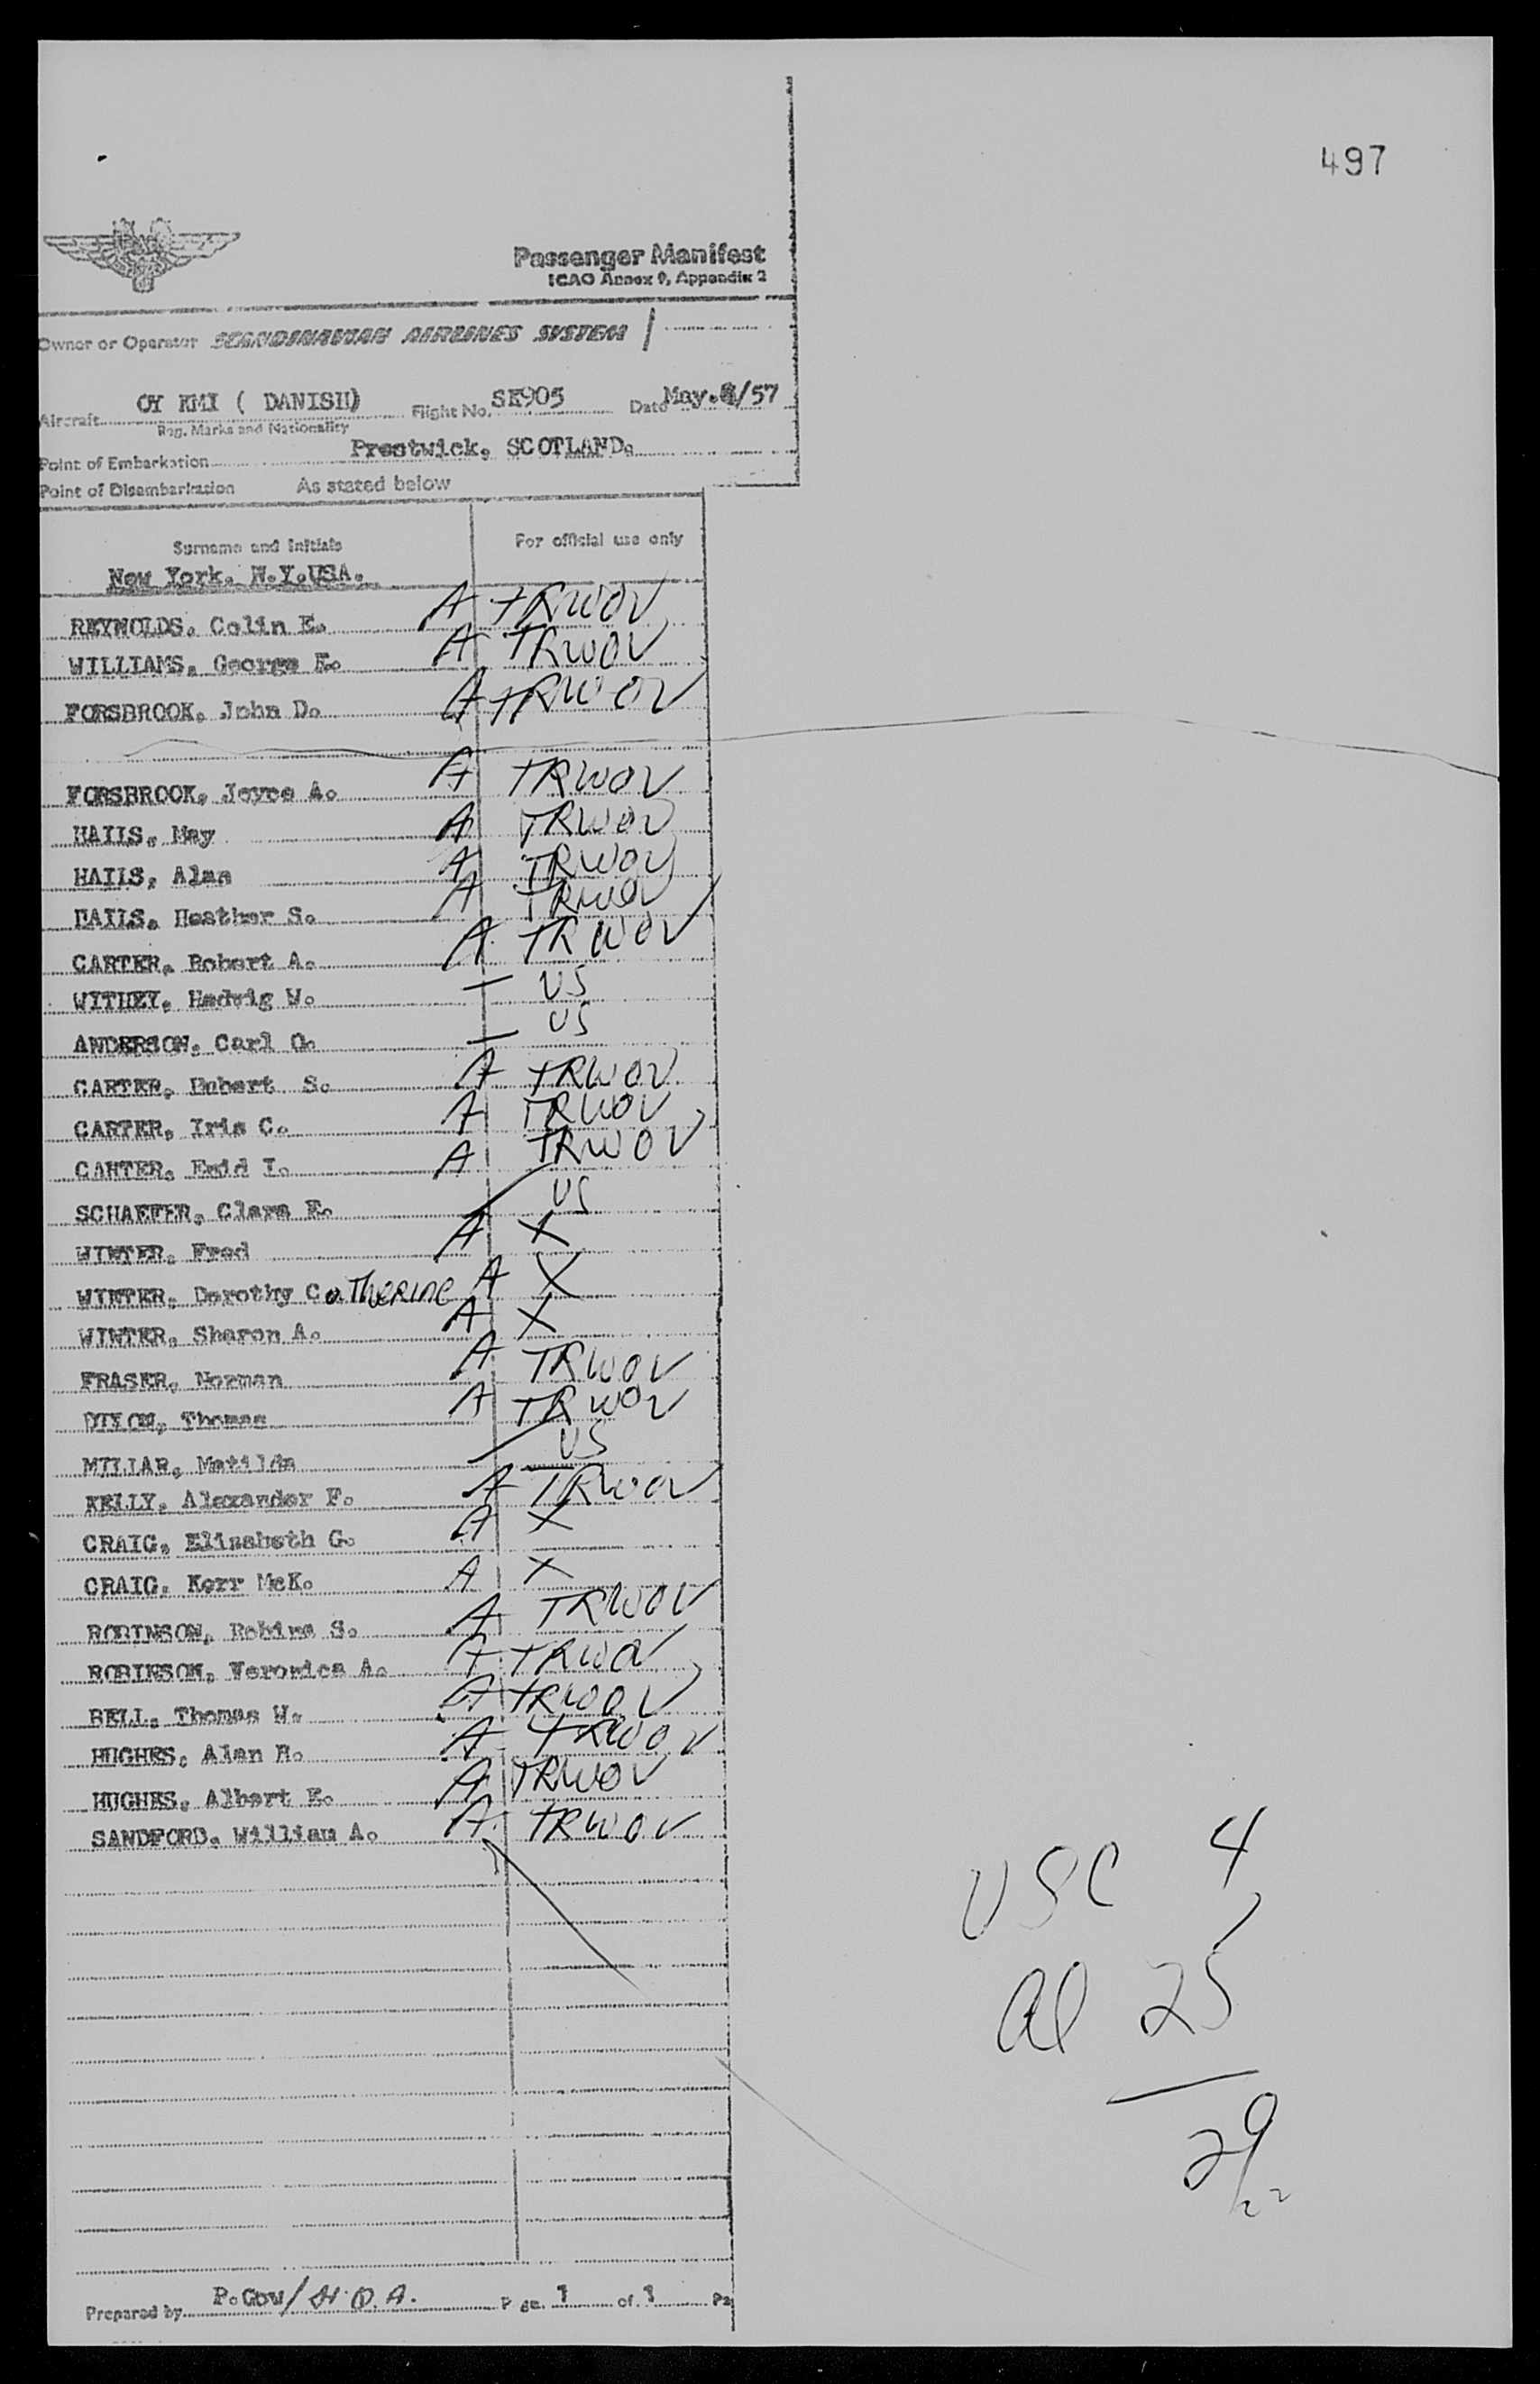 497
Passenger Manifest
ICAO Annex 9, Appendix 2
Owner or Operator SCANDINAVIAN AIRLINES SYSTEM
Aircraft OY KMI ( DANISH) Flight No. SK905 Date May. /57
Reg. Marks and Nationality
Point of Embarkation Prestwick, SCOTLAND.
Point of Disembarkation As stated below
Surname and Initials For official use only
New York. N.Y.USA.
REYNOLDS. Colin E. A TRWOV
WILLIAMS. George E. A TRWOV
FORSBROOK. John D. A TRWOV
FORSBROOK. Joyce A. A TRWOV
HAILS. May A TRWOV
HAILS. Alan A TRWOV
HAILS. Heather S. A TRWOV
CARTER. Robert A. A TRWOV
WITHEY. Hedwig W. — US
ANDERSON. Carl O. — US
CARTER. Robert S. A TRWOV
CARTER. Iris C. A TRWOV
CARTER. Enid I. A TRWOV
SCHAEFER. Clara E. US
WINTER. Fred A X
WINTER. Dorothy Catherine A X
WINTER. Sharon A. A X
FRASER. Norman A TRWOV
DIXON. Thomas A TRWOV
MILLAR. Matilda US
KELLY. Alexander F. A TRWOV
CRAIG. Elizabeth G. A X
CRAIG. Kerr McK. A X
ROBINSON. Robina S. A TRWOV
ROBINSON. Veronica A. A TRWOV
BELL. Thomas W. A TRWOV
HUGHES. Alan R. A TRWOV
HUGHES. Albert E. A TRWOV
SANDFORD. William A. A TRWOV
USC 4
al 25
29
Prepared by P.Gow/ Page 1 of 1 Pa